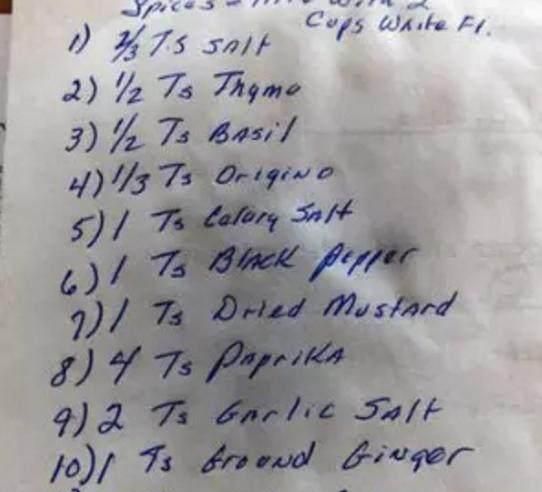 Spices - Mix with 2
Cups White Fl.
1) 2/3 Ts Salt
2) 1/2 Ts Thyme
3) 1/2 Ts Basil
4) 1/3 Ts Origino
5) 1 Ts Celary Salt
6) 1 Ts Black Pepper
7) 1 Ts Dried Mustard
8) 4 Ts Paprika
9) 2 Ts Garlic Salt
10) 1 Ts Ground Ginger